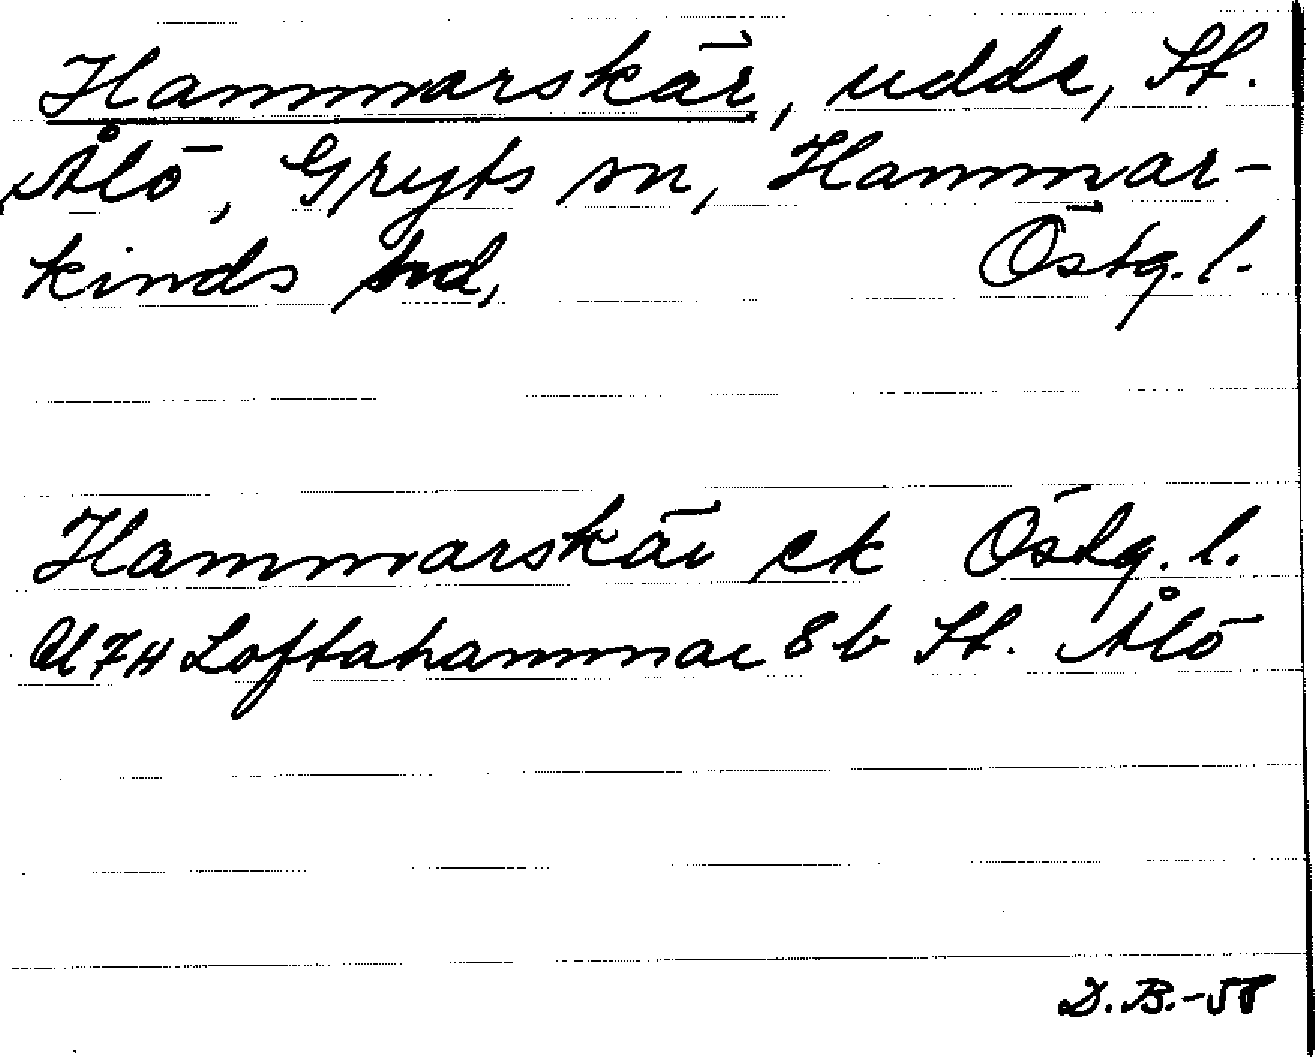 Hammarskär, udde, St.
Ålö, Gryts sn, Hammar-
kinds hd, Östg. l.
Hammarskär ek Östg. l.
Loftahammar 8 b St. Ålö
D. B. -58